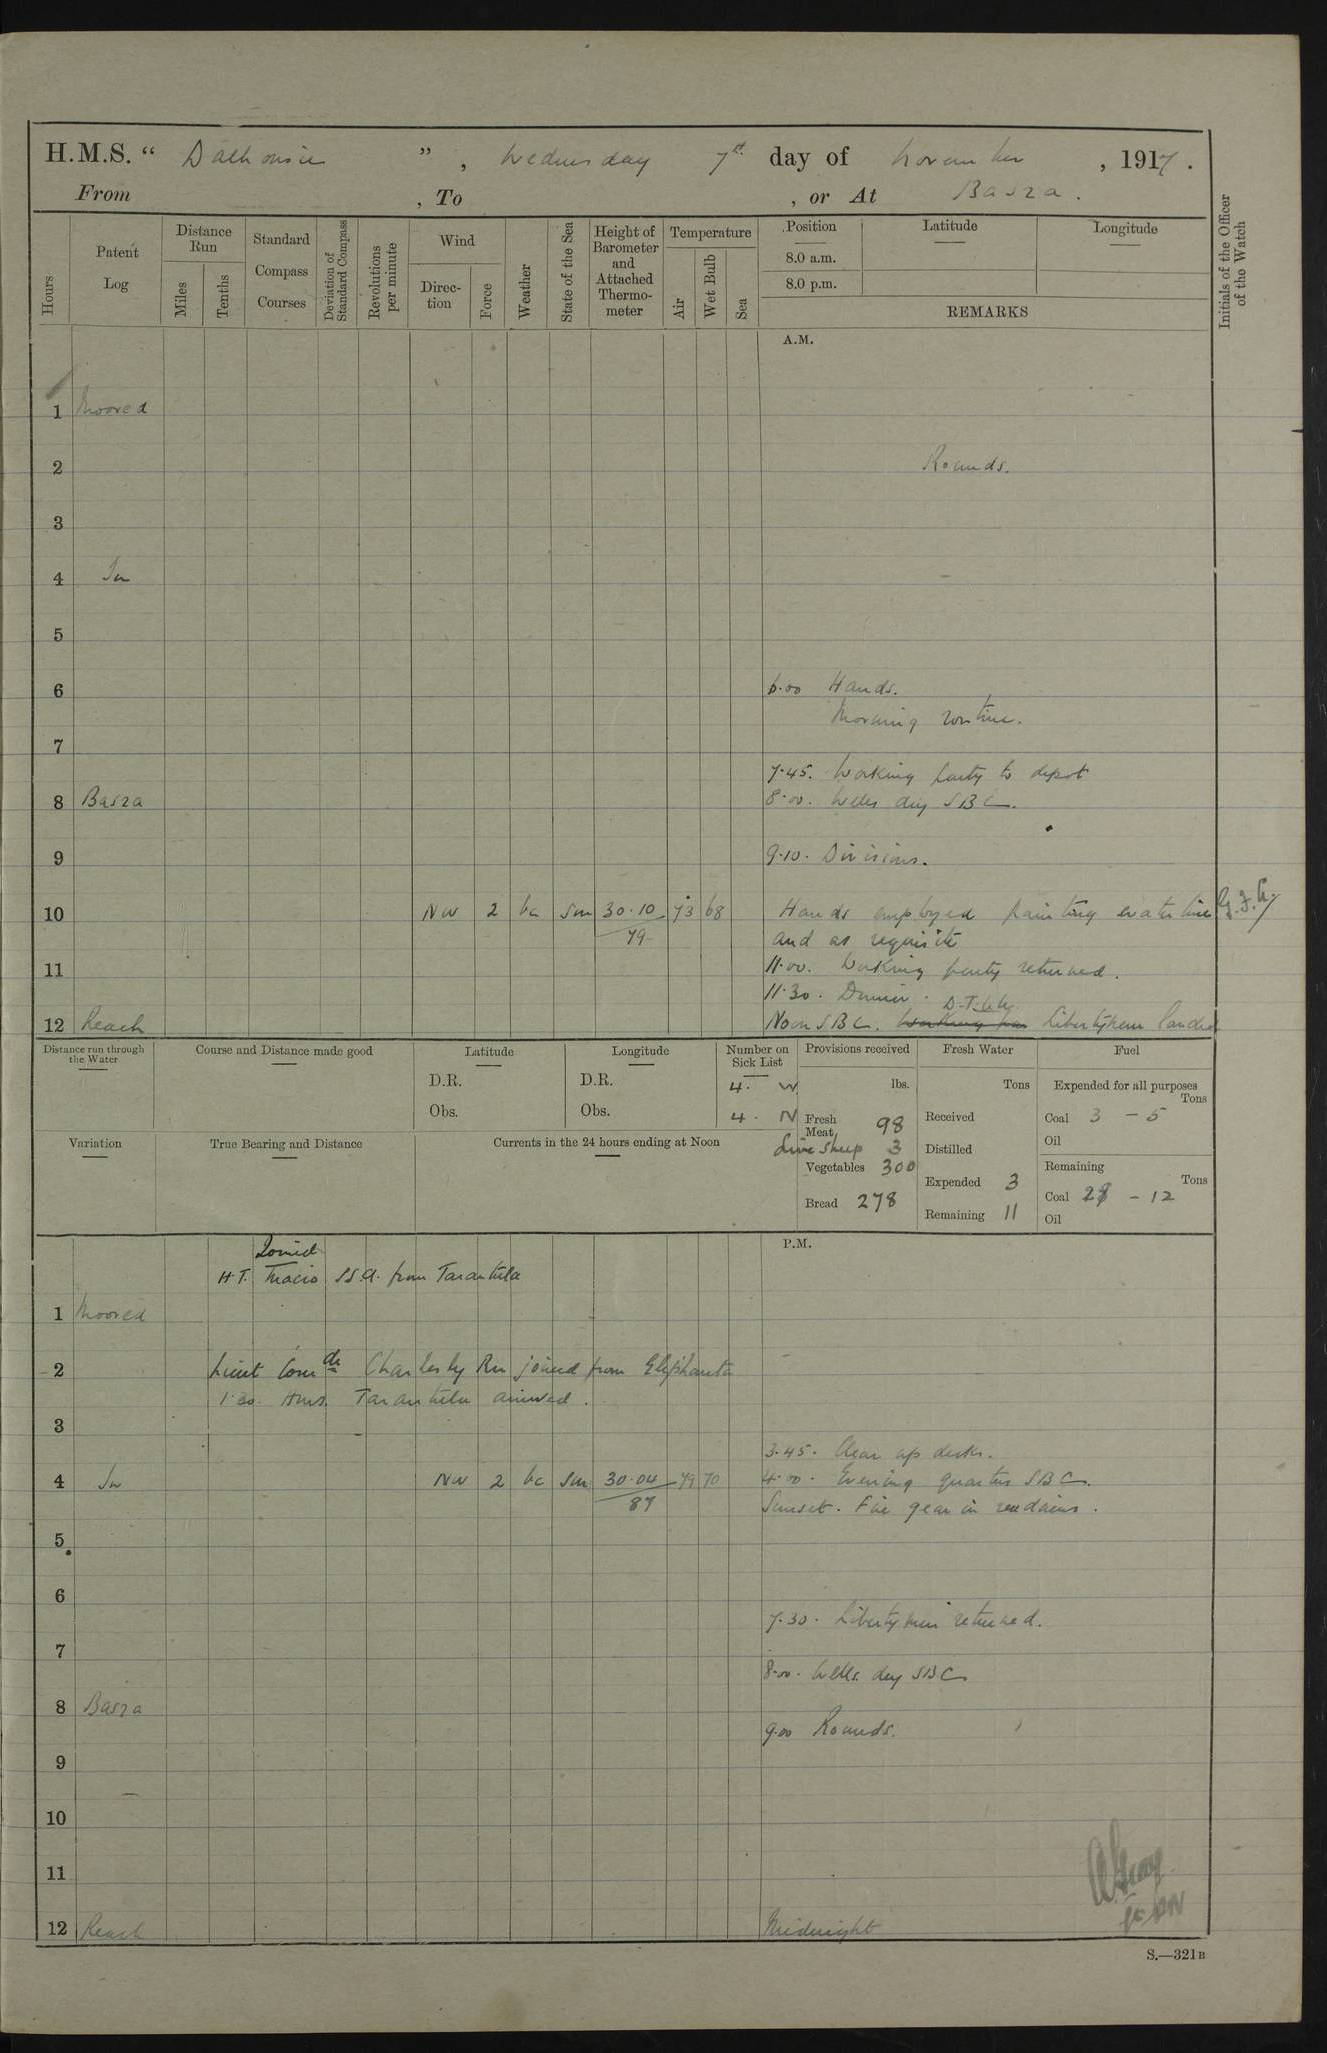 H.M.S. “ Dalhousie ” , Wednesday 7th day of November , 1917 .
From , To , or At Basra .
Hours
Patent Log
Distance Run
Miles
Tenths
Standard Compass Courses
Deviation of Standard Compass
Revolutions per minute
Wind
Direction
Force
Weather
State of the Sea
Height of Barometer and Attached Thermometer
Temperature
Air
Wet Bulb
Sea
Position
Latitude
Longitude
8.0 a.m.
8.0 p.m.
REMARKS
Initials of the Officer of the Watch
A.M.
1 Moored
2 Rounds.
3
4 In
5
6 6.00 Hands.
Morning routine.
7
7.45. Working party to depot
8 Basra 8.00. Wells dry SBC.
9 9.10. Divisions.
10 NW 2 bc Sm 30.10 73 68 Hands employed painting waterline
79 and as requisite
11 11.00. Working party returned.
11.30. Dinner.
12 Reach Noon SBC. Libertymen landed
Distance run through the Water
Course and Distance made good
Latitude
D.R.
Obs.
Longitude
D.R.
Obs.
Number on Sick List
4. W
4. N
Provisions received
lbs.
Fresh Meat 98
Live Sheep 3
Vegetables 300
Bread 278
Fresh Water
Tons
Received
Distilled
Expended 3
Remaining 11
Fuel
Expended for all purposes
Tons
Coal 3 - 5
Oil
Remaining
Tons
Coal - 12
Oil
Variation
True Bearing and Distance
Currents in the 24 hours ending at Noon
P.M.
Joined
H.T. S.S.A. from Tarantula
1 Moored
2 Lieut Comdr RN joined from Elephanta
1.30. HMS. Tarantula arrived.
3
3.45. Clear up decks.
4 In NW 2 bc Sm 30.04 79 70 4.00. Evening quarters SBC.
87 Sunset. Fire gear in readiness.
5
6
7.30. Libertymen returned.
7
8.00. Wells dry SBC
8 Basra
9.00 Rounds.
9
10
11
12 Reach Midnight
S.—321B